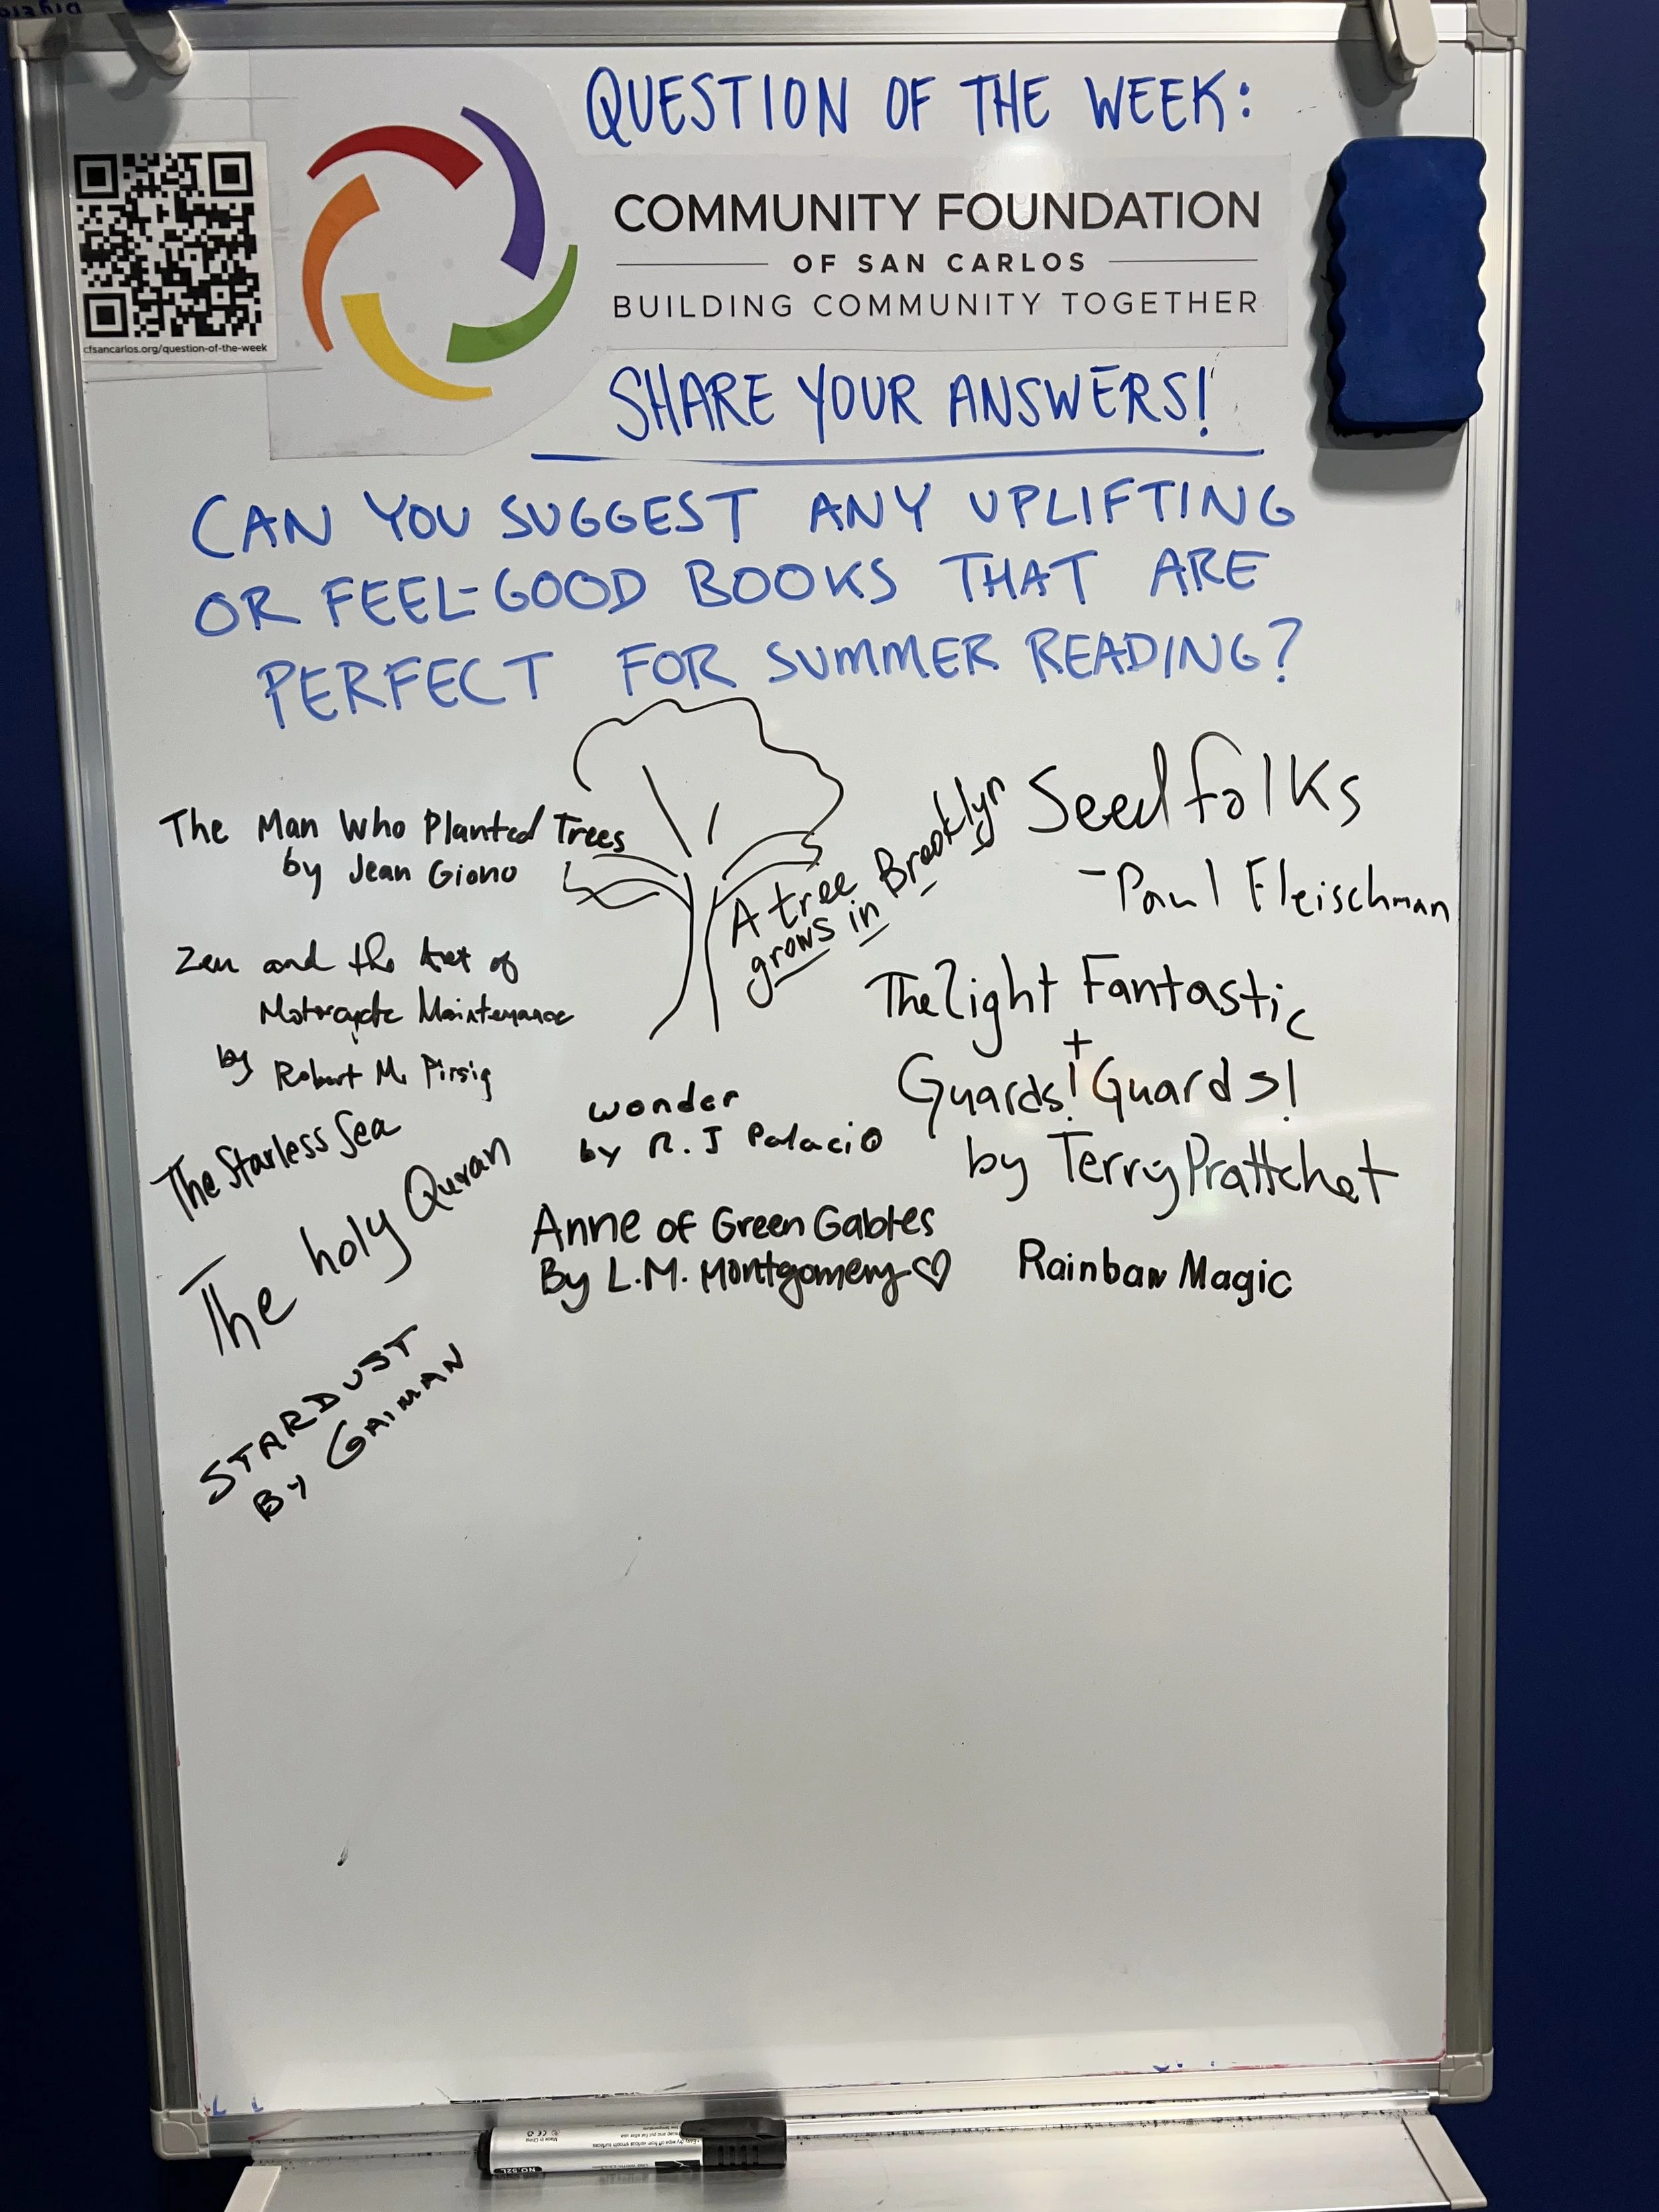 QUESTION OF THE WEEK:
COMMUNITY FOUNDATION
OF SAN CARLOS
BUILDING COMMUNITY TOGETHER
cfsancarlos.org/question-of-the-week
SHARE YOUR ANSWERS!
CAN YOU SUGGEST ANY UPLIFTING
OR FEEL-GOOD BOOKS THAT ARE
PERFECT FOR SUMMER READING?
The Man Who Planted Trees
by Jean Giono
A tree
grows in Brooklyn
Seedfolks
- Paul Fleischman
Zen and the Art of
Motorcycle Maintenance
by Robert M. Pirsig
The Light Fantastic
+
Guards! Guards!
by Terry Prattchet
The Starless Sea
wonder
by R.J Palacio
The holy Quran
Anne of Green Gables
By L.M. Montgomery
Rainbow Magic
STARDUST
BY GAIMAN
Made in China
NO.52L